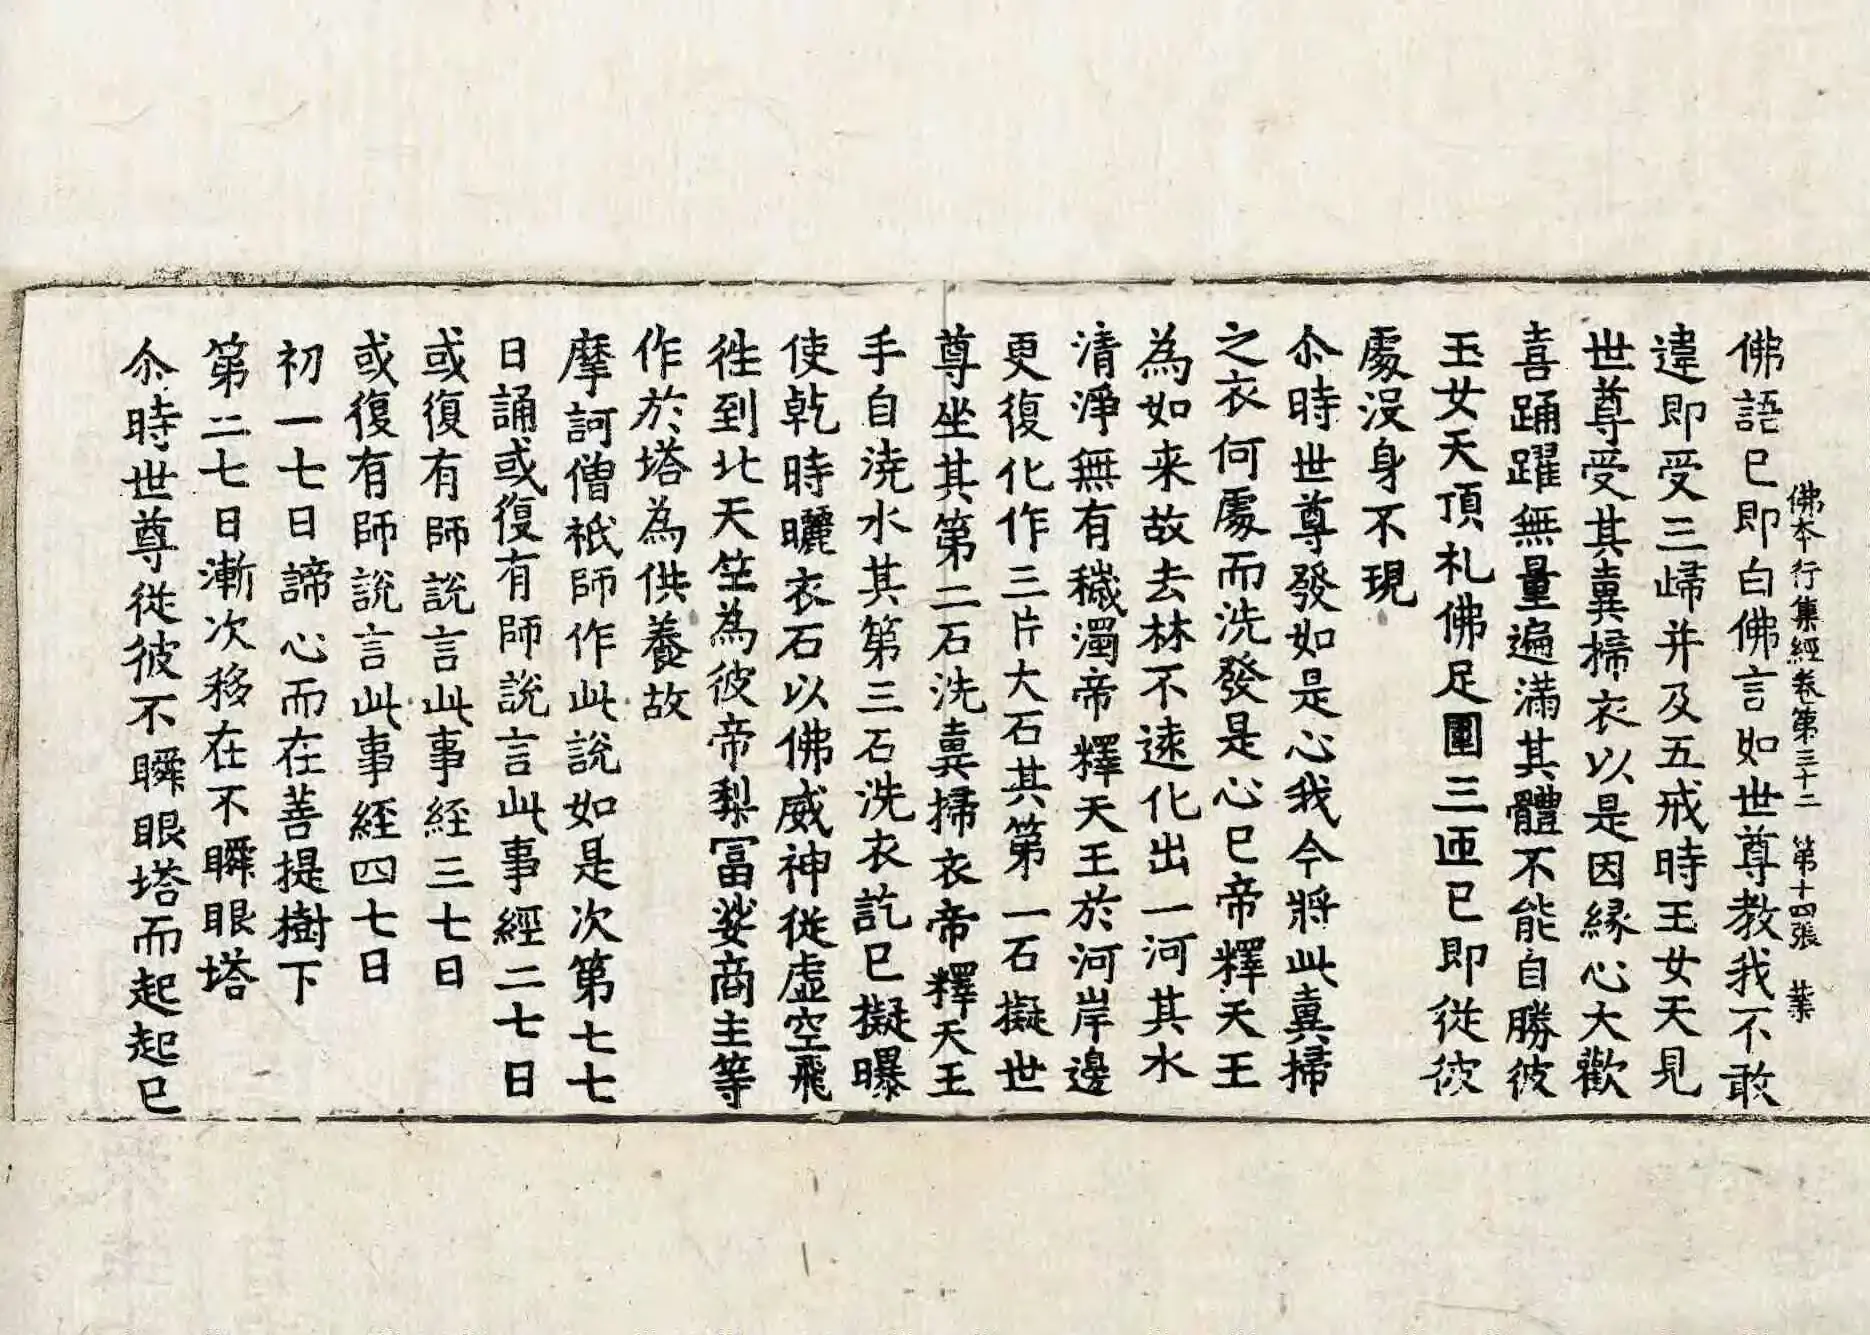 佛本行集經卷第三十二　第十四張　業
佛語已即白佛言如世尊教我不敢
違即受三歸并及五戒時玉女天見
世尊受其糞掃衣以是因緣心大歡
喜踊躍無量遍滿其體不能自勝彼
玉女天頂礼佛足圍三匝已即從彼
處沒身不現
尒時世尊發如是心我今將此糞掃
之衣何處而洗發是心已帝釋天王
為如来故去林不遠化出一河其水
清淨無有穢濁帝釋天王於河岸邊
更復化作三片大石其第一石擬世
尊坐其第二石洗糞掃衣帝釋天王
手自澆水其第三石洗衣訖已擬曝
使乾時曬衣石以佛威神從虛空飛
徃到北天竺為彼帝梨冨娑商主等
作於塔為供養故
摩訶僧祇師作此說如是次第七七
日誦或復有師說言此事經二七日
或復有師說言此事經三七日
或復有師說言此事經四七日
初一七日諦心而在菩提樹下
第二七日漸次移在不瞬眼塔
尒時世尊從彼不瞬眼塔而起起已